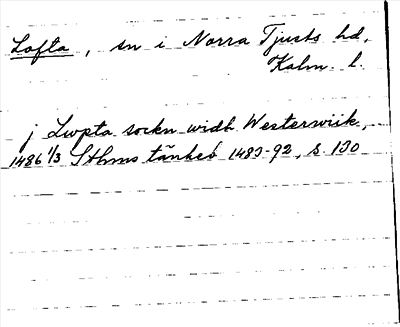 Lofta, sn i Norra Tjusts hd,
Kalm. l.
j Lwpta sockn widh Westerwiik,
1486 1/3 Sthms tänkeb 1483-92, s. 130